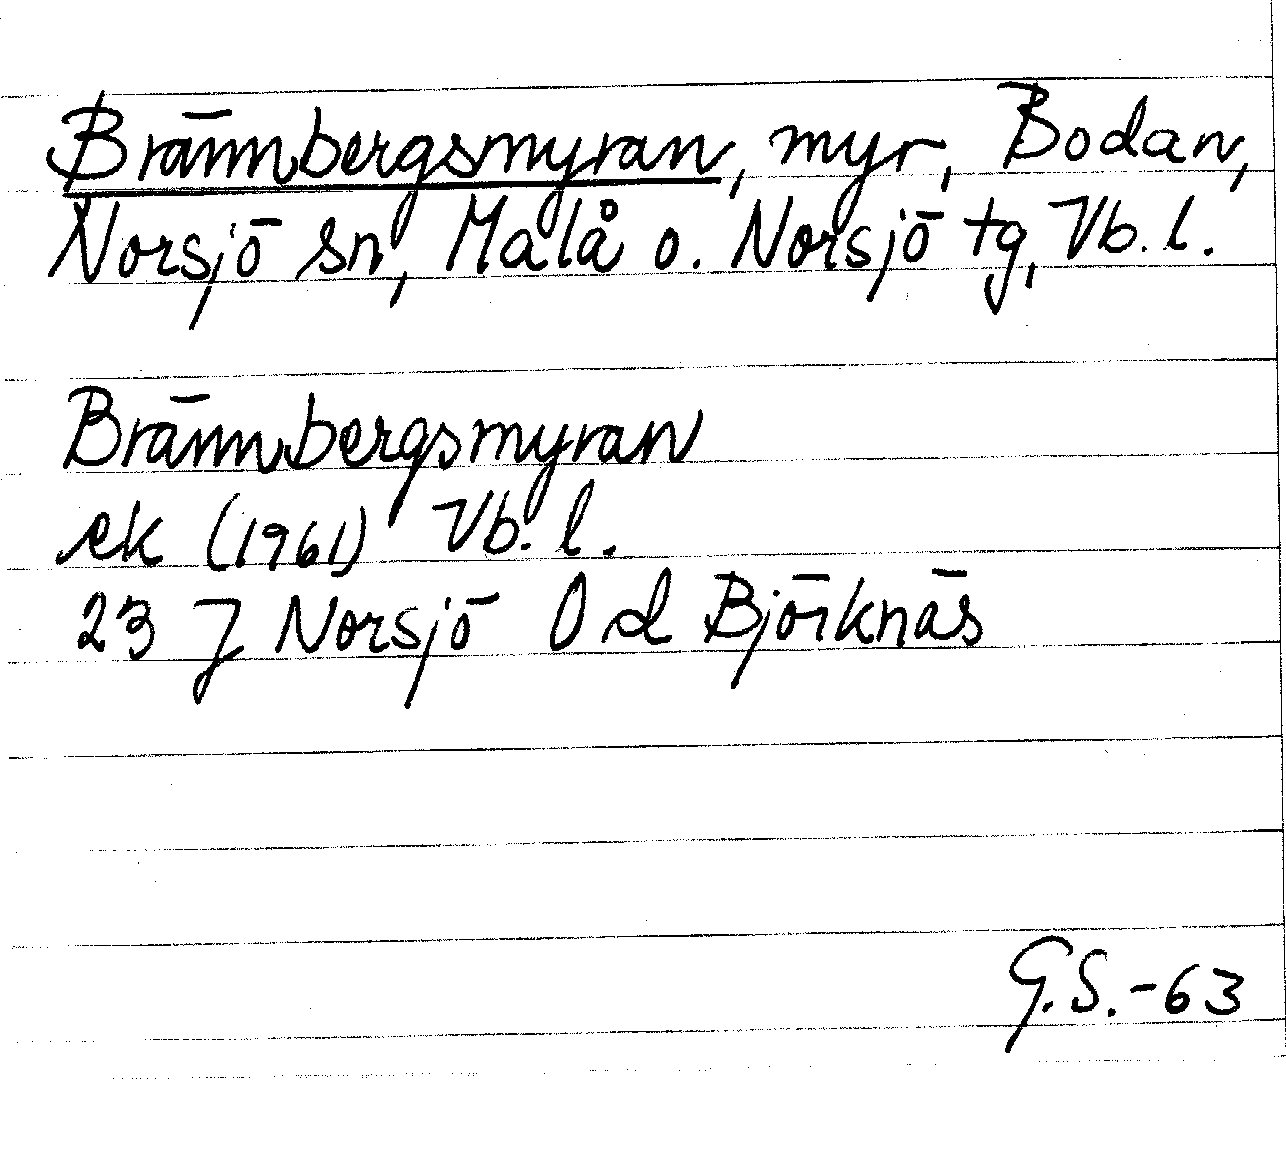 Brännbergsmyran, myr, Bodan,
Norsjö sn, Malå o. Norsjö tg, Vb. l.
Brännbergsmyran
ek (1961) Vb. l.
23 J Norsjö 0 d Björknäs
G.S.-63